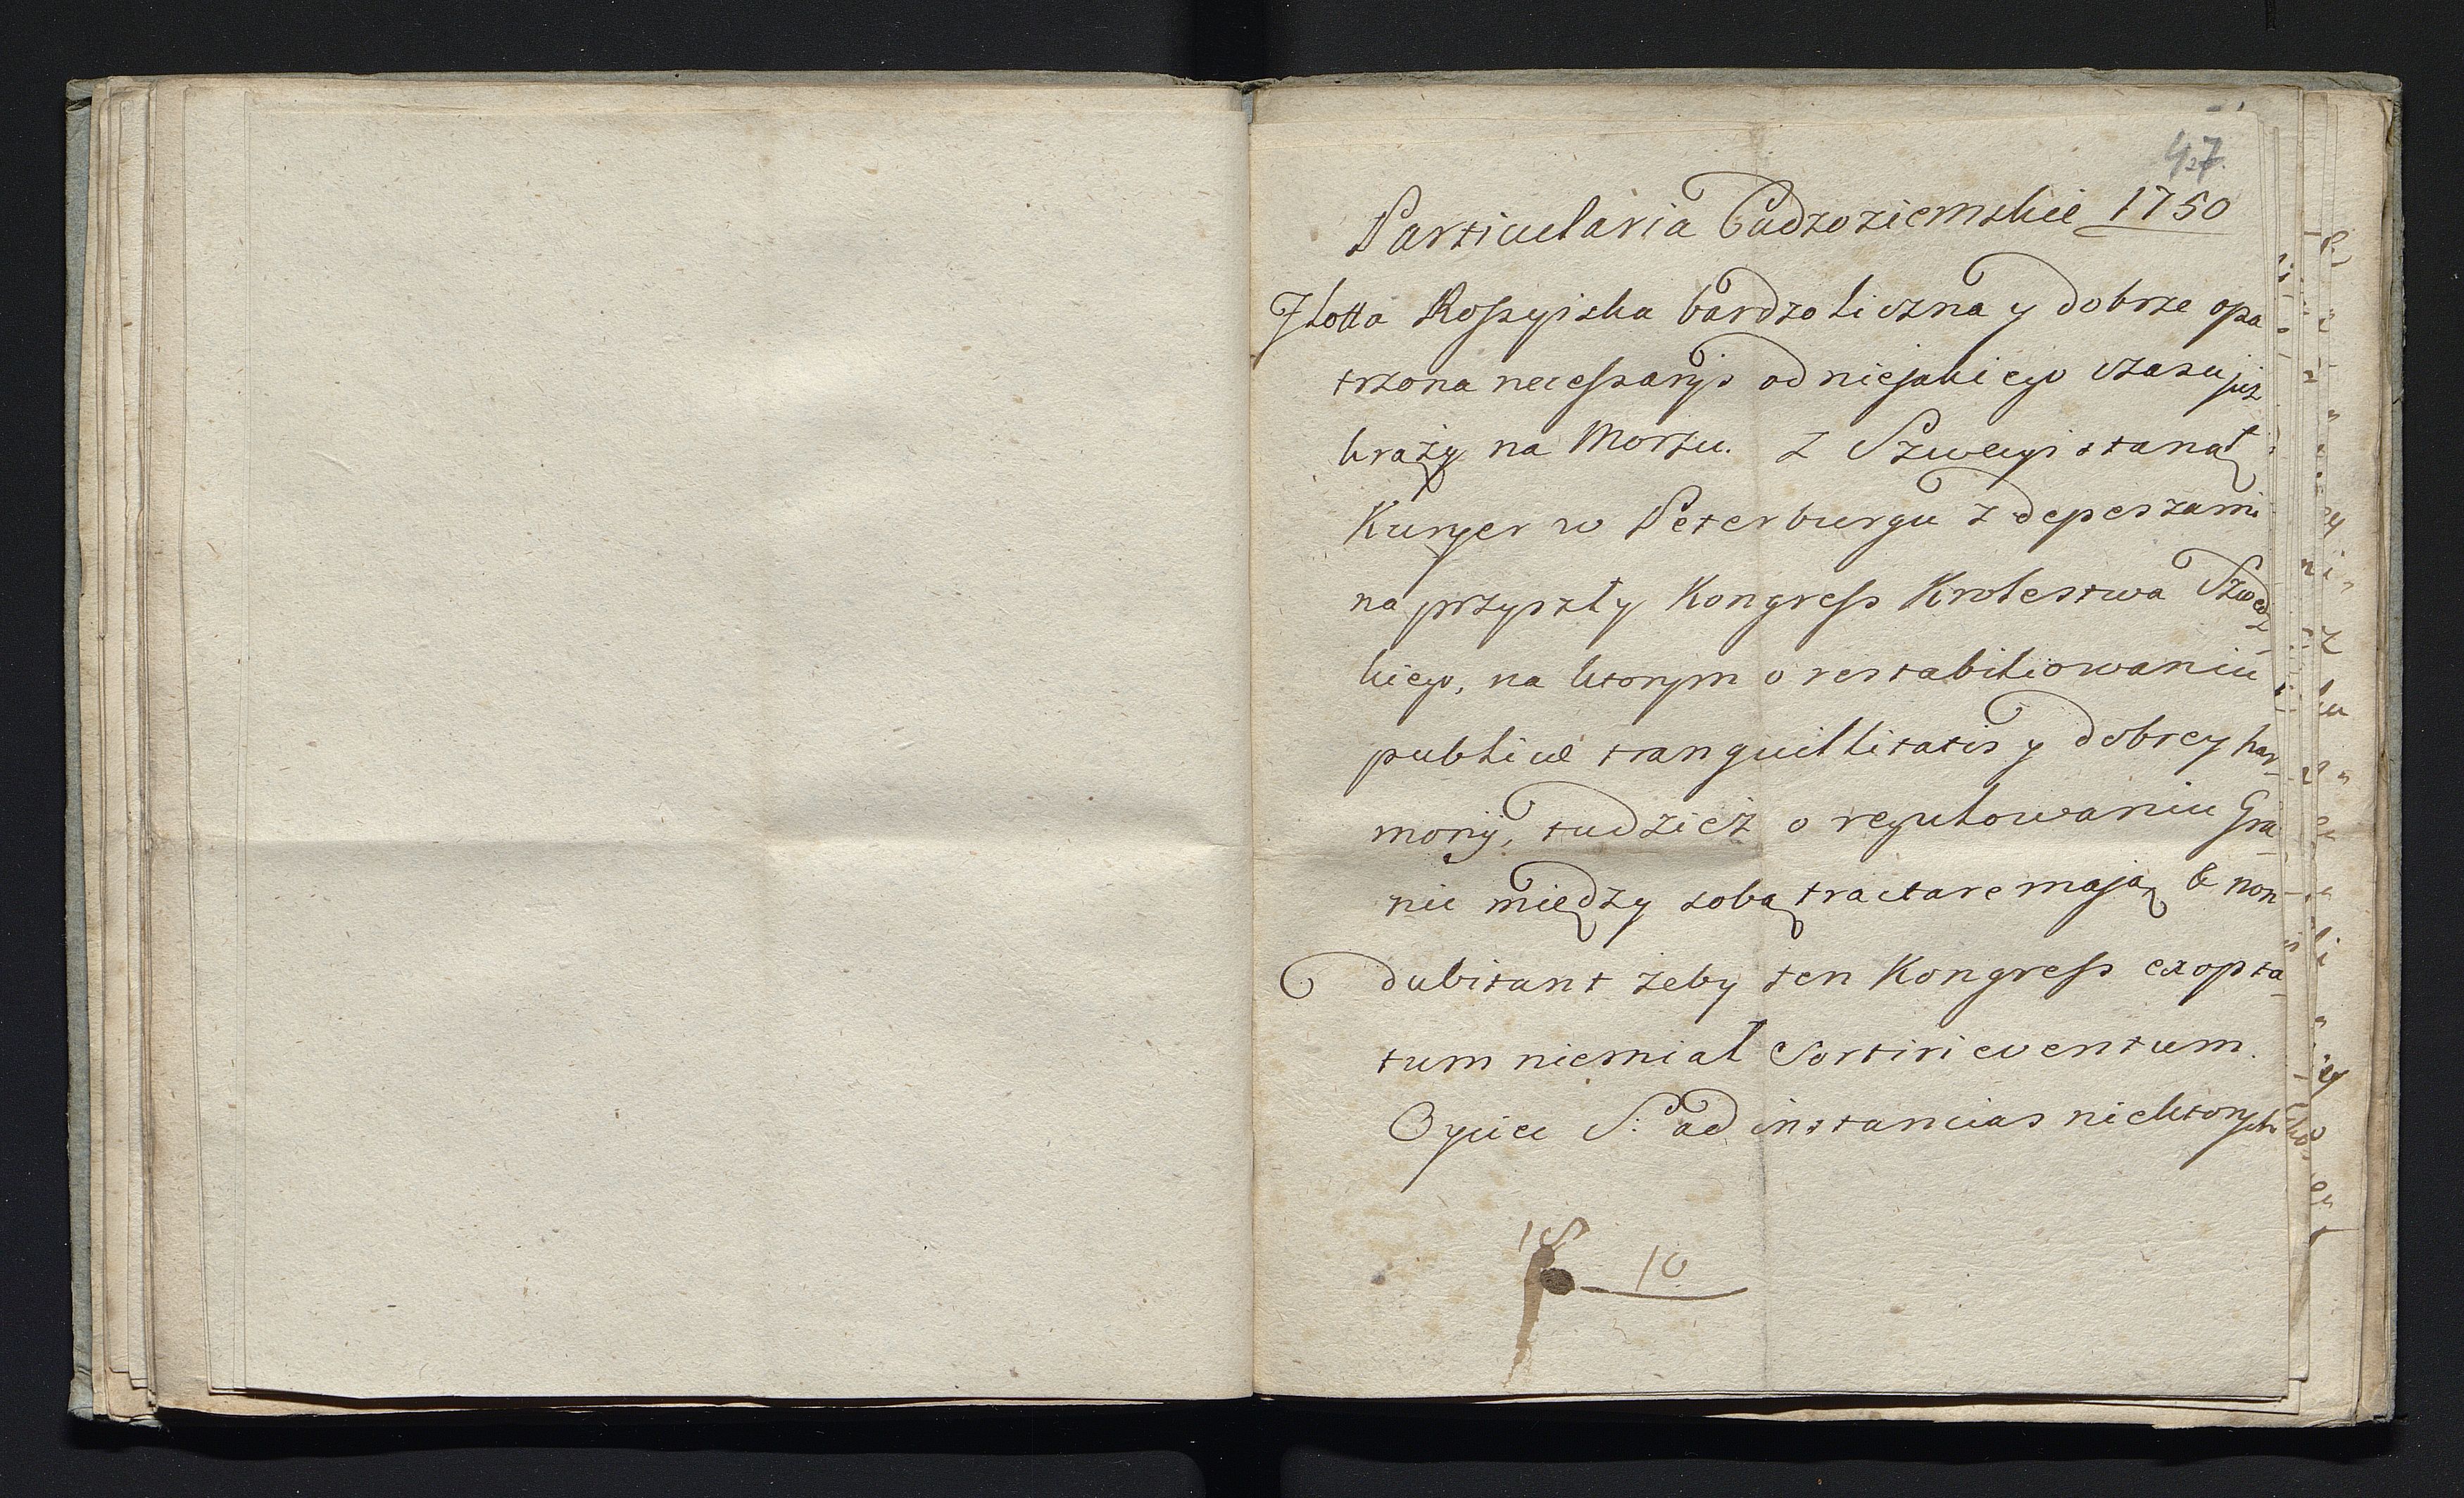 47.
Particularia Cudzoziemskie 1750
Flotta Rossyiska bardzo liczna y dobrze opa
trzona necessarijs od niejakiego czasu już
krąży na Morzu. Z Szwecyi stanął
Kuryer w Peterburgu z depeszami
na przyszły Kongress Krolestwa Szwedz
kiego, na ktorym o restabiliowaniu
publicæ tranquillitatis y dobrey har-
monij, tudziesz o regulowaniu Gra-
nic między sobą tractare mają & non
dubitant żeby ten Kongress exopta-
tum niemiał sortiri eventum.
Oyciec S: ad instancias niektorych
18
10